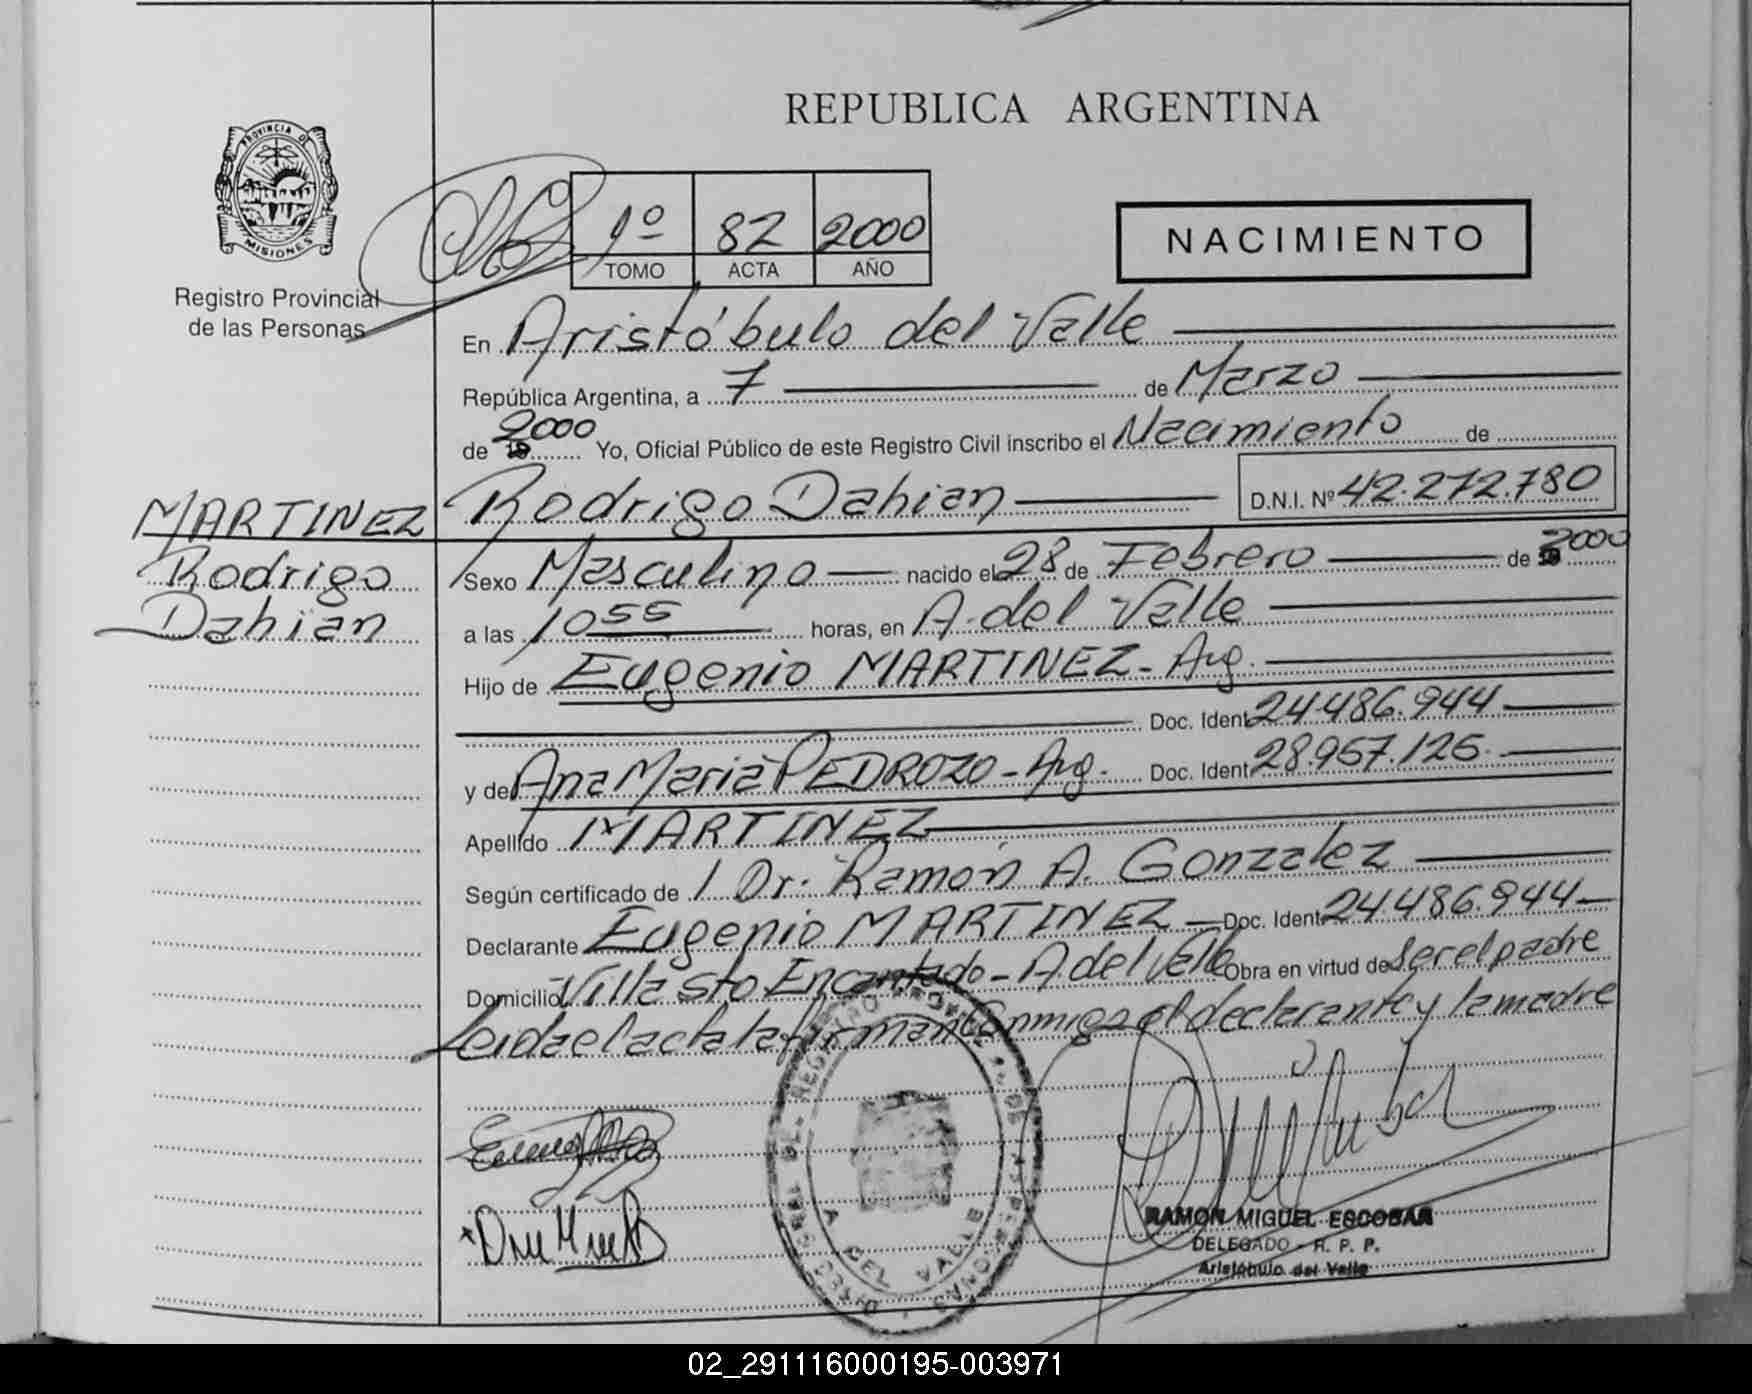 REPUBLICA ARGENTINA
PROVINCIA DE
MISIONES
Registro Provincial
de las Personas
1º 82 2000
TOMO ACTA AÑO
NACIMIENTO
En Aristóbulo del Valle
República Argentina, a 7 de Marzo
de 2000 Yo, Oficial Público de este Registro Civil inscribo el Nacimiento de
Rodrigo Dahian D.N.I. Nº 42.272.780
MARTINEZ
Rodrigo
Dahian
Sexo Masculino nacido el 28 de Febrero de 2000
a las 10 55 horas, en A. del Valle
Hijo de Eugenio MARTINEZ - Arg.
Doc. Ident 24.486.944
y de Ana Maria PEDROZO - Arg. Doc. Ident 28.957.126
Apellido MARTINEZ
Según certificado de Dr. Ramón A. Gonzalez
Declarante Eugenio MARTINEZ Doc. Ident 24.486.944
Domicilio Villa Sto Encantado - A. del Valle Obra en virtud de ser el padre
Leida el acta la firman conmigo el declarante y la madre
A. DEL VALLE
RAMON MIGUEL ESCOBAR
DELEGADO - R. P. P.
Aristóbulo del Valle
02_291116000195-003971